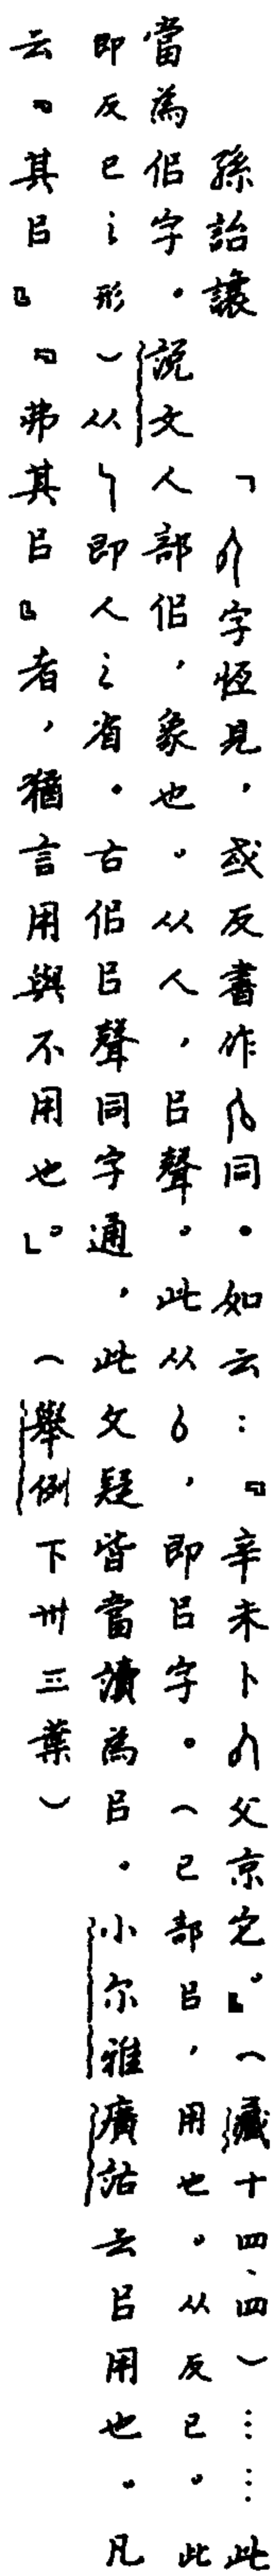 孫詒讓　「字恆見，或反書作同。如云：『辛未卜父京㝎。』（藏十四、四）……此
當為侣字。說文人部侣，象也。从人，㠯聲。此从，即㠯字。（巳部㠯，用也。从反巳。此
即反巳之形）从即人之省。古侣㠯聲同字通，此文疑皆當讀為㠯。小尔雅廣詁云㠯用也。凡
云『其㠯』『弗其㠯』者，猶言用與不用也」。（舉例下卅三葉）